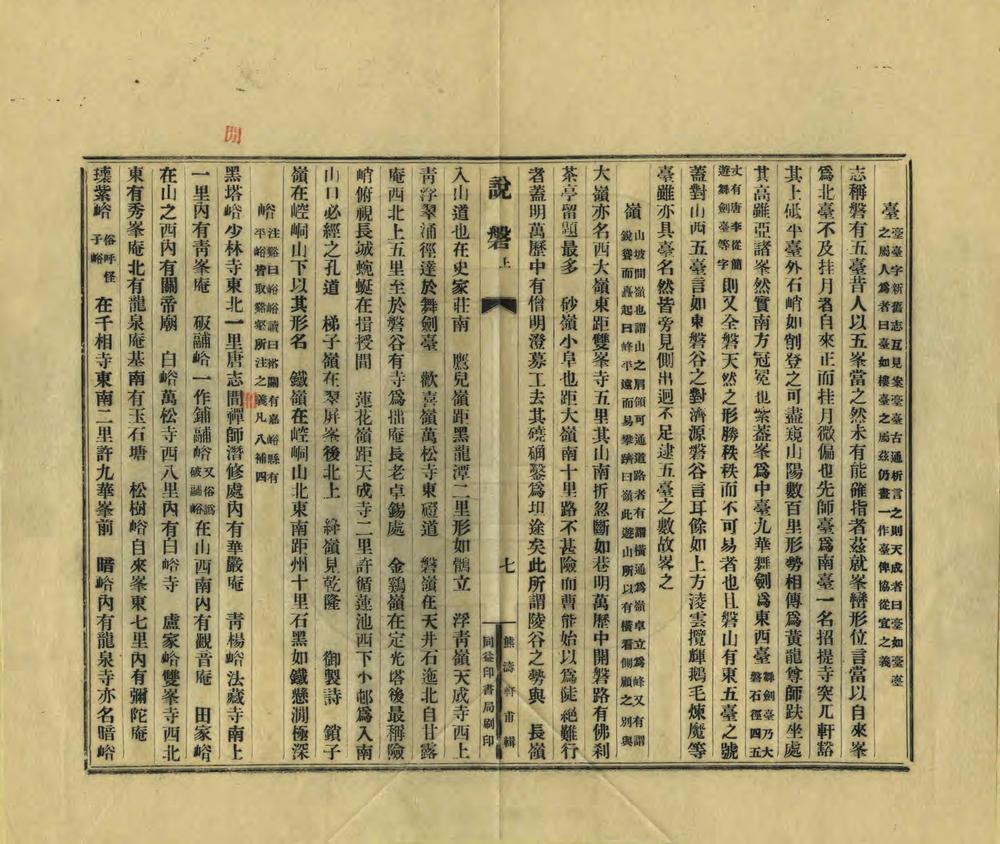 臺 臺臺字新舊志互見案臺古通析言之則天成者曰臺如臺壺
之屬人為者曰臺如樓臺之屬茲仍畫一作臺俾協從宜之義
志稱磐有五臺昔人以五峯當之然未有能確指者茲就峯巒形位言當以自來峯
為北臺不及挂月者自來正而挂月微偏也先師臺為南臺一名招提寺突兀軒豁
其上砥平臺外石峭如削登之可盡窺山陽數百里形勢相傳為黃龍尊師趺坐處
其高雖亞諸峯然實南方冠冕也紫蓋峯為中臺九華舞劍為東西臺 舞劍臺乃大
磐石徑四五
丈有唐李從簡
遊舞劍臺等字 則又全磐天然之形勝秩秩而不可易者也且磐山有東五臺之號
蓋對山西五臺言如東磐谷之對濟源磐谷言耳餘如上方淩雲攬輝鵝毛煉魔等
臺雖亦具臺名然皆旁見側出迥不足逮五臺之數故畧之
嶺 山坡間嶺也謂山之肩領可通道路者有謂橫通為嶺卓立為峰又有謂
銳聳而矗起曰峰平遠而易攀躋曰嶺此遊山所以有橫看側顧之別與
大嶺亦名西大嶺東距雙峯寺五里其山南折忽斷如巷明萬歷中開磐路有佛刹
茶亭留題最多 砂嶺小阜也距大嶺南十里路不甚險而曹能始以為徒絕難行
者蓋明萬歷中有僧明澄募工去其磽确鑿為坦途矣此所謂陵谷之勢與 長嶺
說磐 上 七 熊濤軒甫輯
同益印書局刷印
入山道也在史家莊南 鷹兒嶺距黑龍潭二里形如鶻立 浮青嶺天成寺西上
青浮翠涌徑達於舞劍臺 歡喜嶺萬松寺東磴道 磐嶺在天井石迤北自甘露
庵西北上五里至於磐谷有寺為拙庵長老卓錫處 金鷄嶺在定光塔後最稱險
峭俯視長城蜿蜒在揖授間 蓮花嶺距天成寺二里許循蓮池西下小邨為入南
山口必經之孔道 梯子嶺在翠屏峯後北上 絳嶺見乾隆 御製詩 鎖子
嶺在崆峒山下以其形名 鐵嶺在崆峒山北東南距州十里石黑如鐵懸澗極深
峪 注谿曰峪峪讀曰裕關有嘉峪縣有
平峪皆取谿壑所注之義凡八補四
黑塔峪少林寺東北一里唐志間禪師潛修處內有華嚴庵 青楊峪法藏寺南上
一里內有青峯庵 砐䃺峪一作鋪䃺峪 又俗譌
破䃺峪 在山西南內有觀音庵 田家峪
在山之西內有關帝廟 白峪萬松寺西八里內有白峪寺 盧家峪雙峯寺西北
東有秀峯庵北有龍泉庵基南有玉石塘 松樹峪自來峯東七里內有彌陀庵
瓌紫峪 俗呼怪
子峪 在千相寺東南二里許九華峯前 暗峪內有龍泉寺亦名暗峪